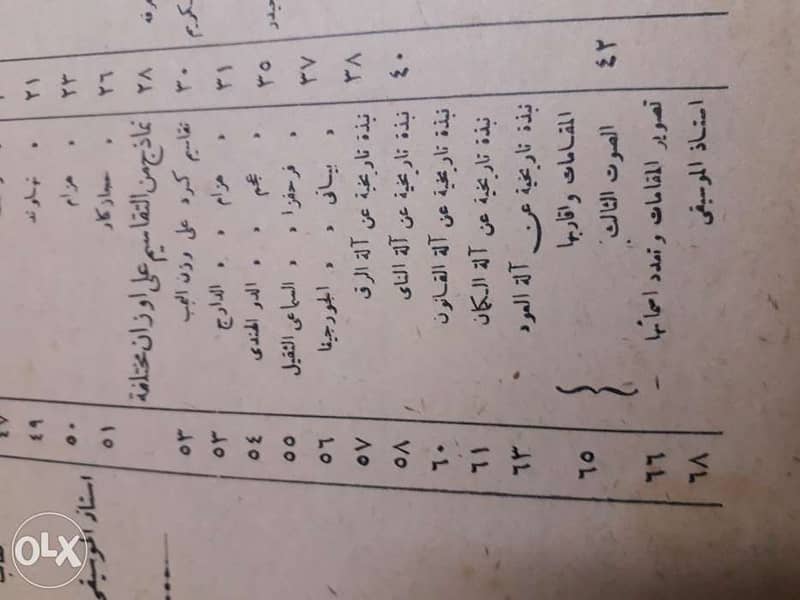 ٢١ » نهاوند ٤٩
٢٣ » هزام ٥٠
٢٦ » حجازكار ٥١
٢٨ نماذج من التقاسيم على اوزان مختلفة
٣٠ تقاسيم كرد على وزن الجب ٥٣
٣١ » هزام » » الدارج ٥٣
٣٥ » عجم » » الدور الهندى ٥٤
٣٧ » فرحفزا » » السماعى الثقيل ٥٥
» بياتى » » الجورجينا ٥٦
٣٨ نبذة تاريخية عن آلة الرق ٥٧
٤٠ نبذة تاريخية عن آلة الناى ٥٨
نبذة تاريخية عن آلة القانون ٦٠
نبذة تاريخية عن آلة الكمان ٦١
نبذة تاريخية عن آلة العود ٦٣
المقامات واقاربها
٤٢ الصوت الثالث } ٦٥
تصوير المقامات وتعدد اسمائها – ٦٦
استاذ الموسيقى ٦٨
استاذ الموسيقى
OLX